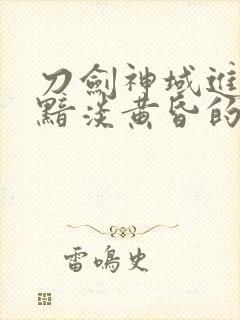 刀劍神域進
黯淡黃昏的
雷鳴史